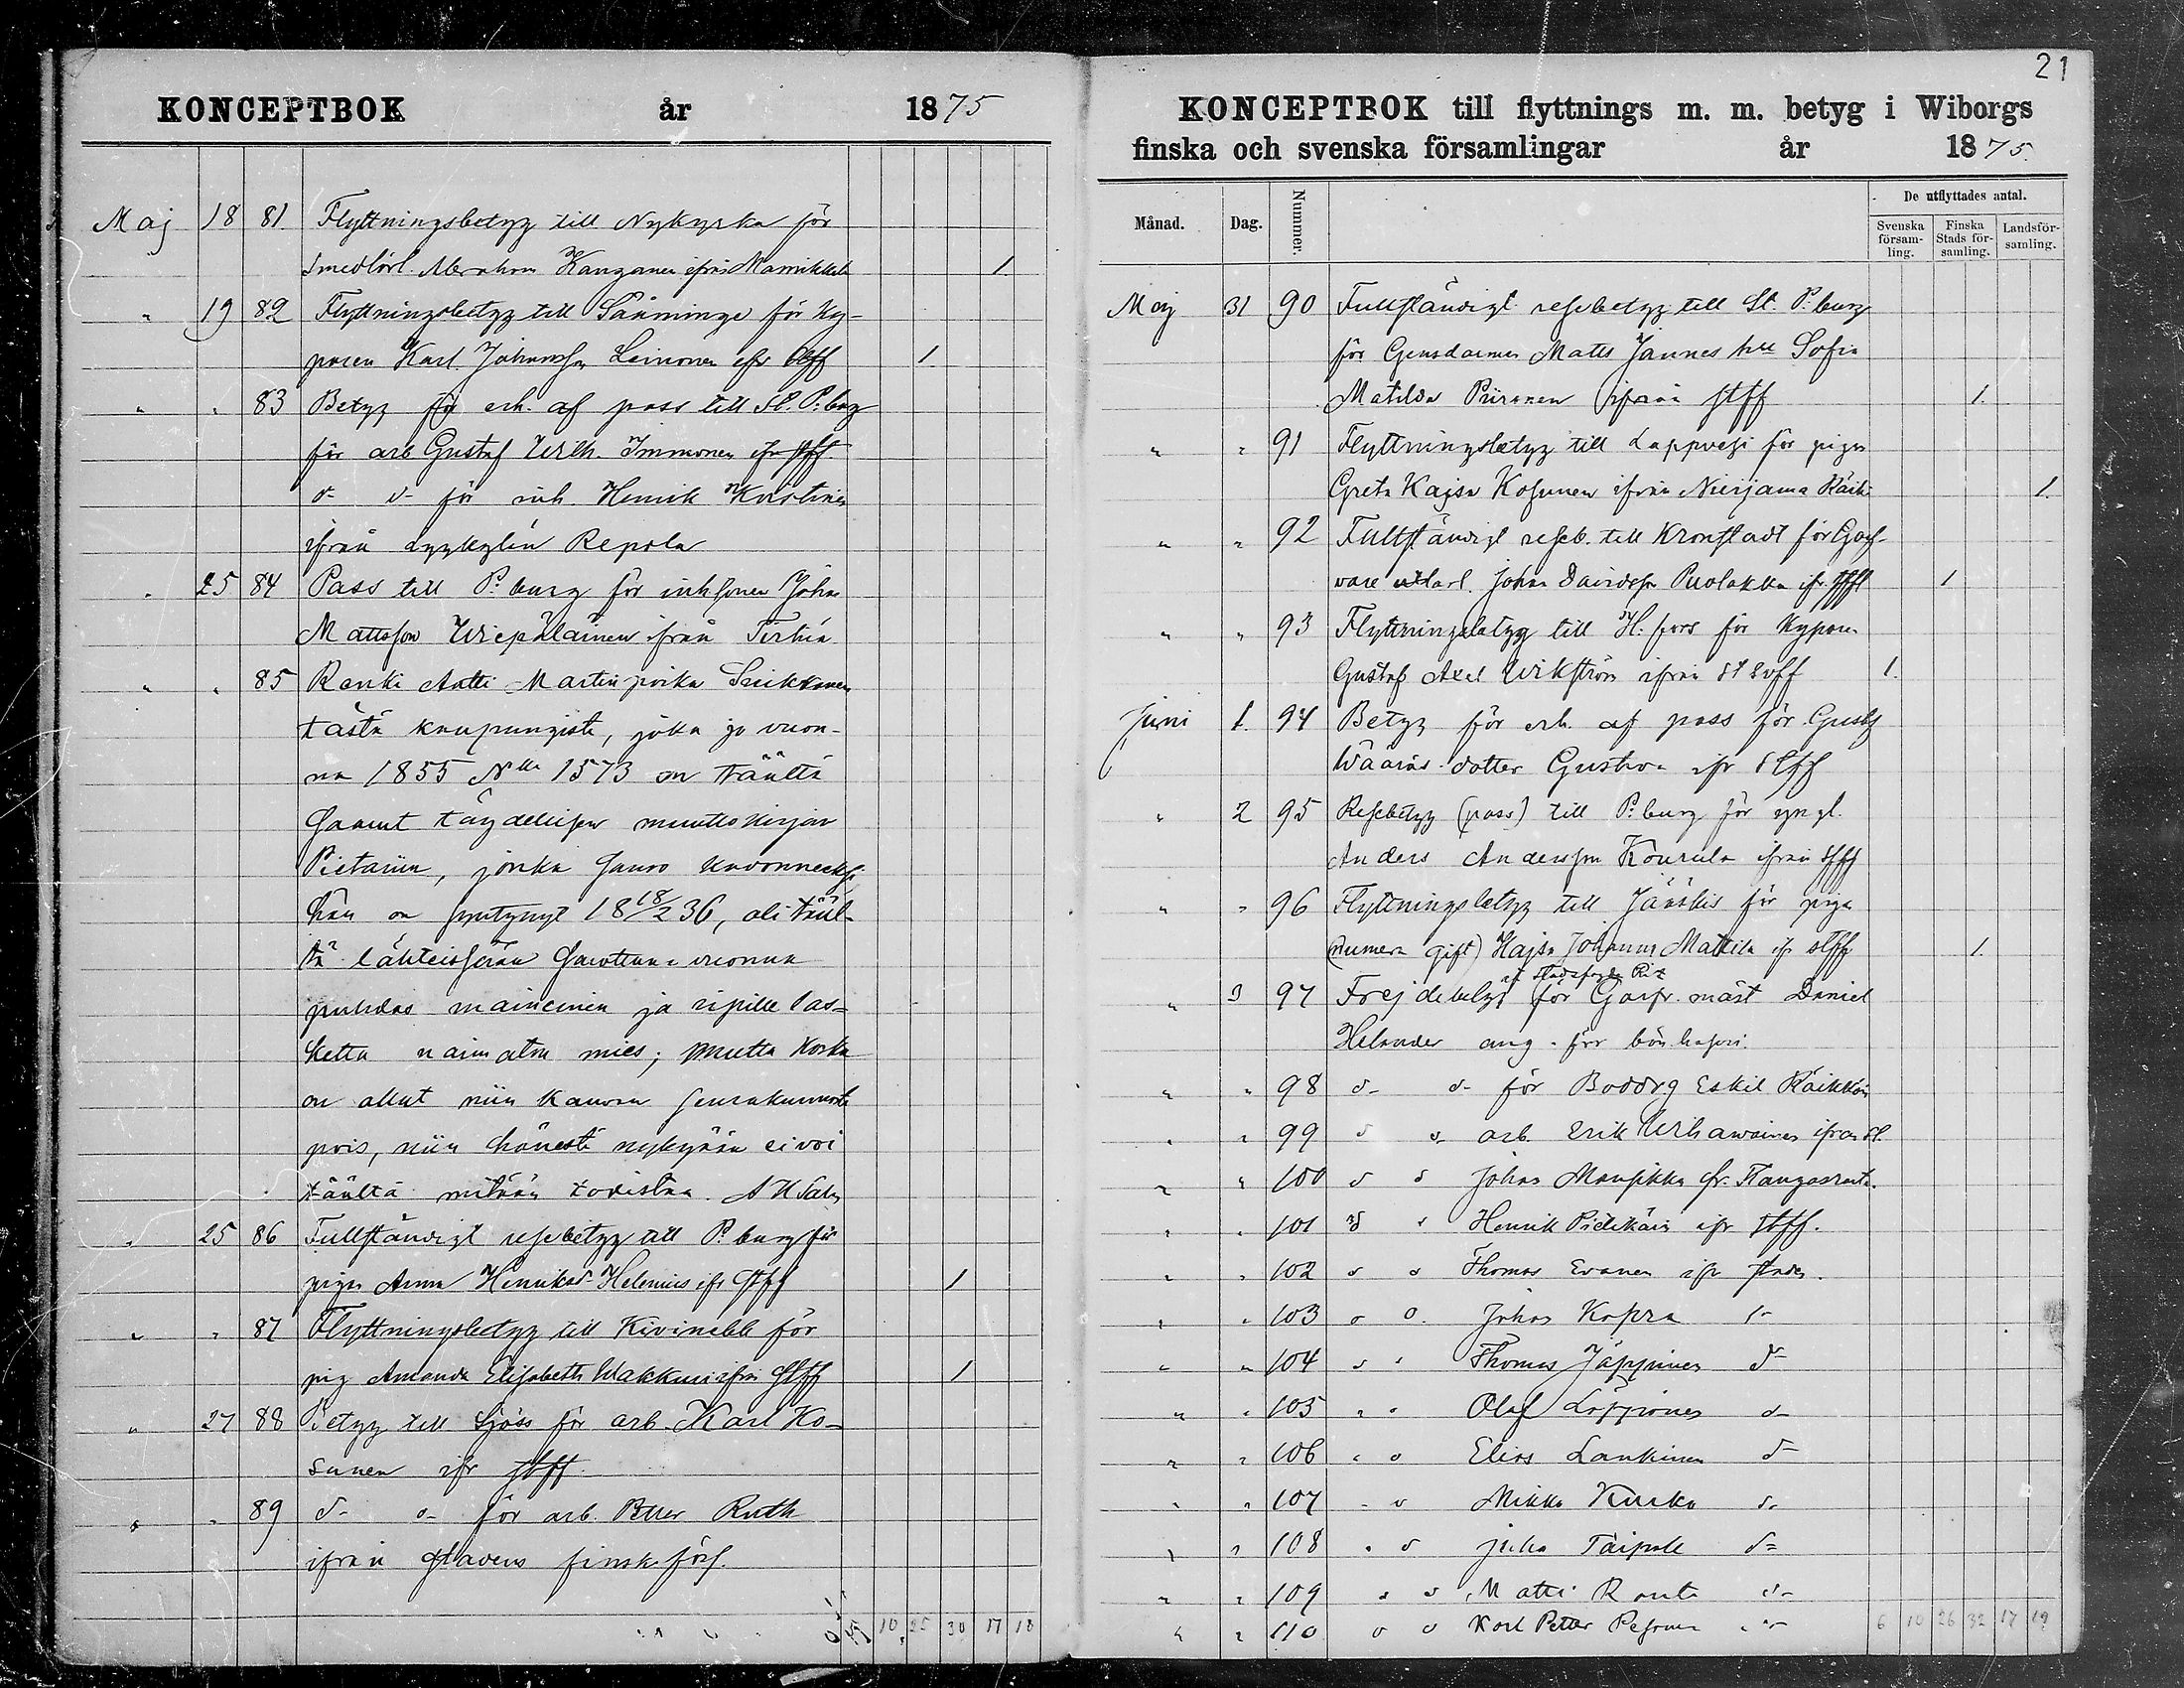 KONCEPTBOK år 1875
Maj 18 81. Flyttningsbetyg till Nykyrka för
Smedlärl. Abraham Kanganen ifrån Mamikkala 1
" 19 82 Flyttningsbetyg till Sääminge för Ky-
paren Karl Johansson Leinonen ifr 1.
" " 83 Betyg för erh. af pass till St. P:burg
för arb Gustaf Wilh. Immonen ifr stff
d- d- för inh. Henrik
ifrån Lyykylä Repola
" 25 84 Pass till P:burg för inhsonen Johan
Mattsson Wiepäläinen ifrån Terhiä
" " 85 Renki Antti Martin poika Suikkanen
tästä kaupungista, joka jo vuon-
na 1855 No 1573 on täältä
saanut täydellisen muuttokirjan
Pietariin, jonka suwo
hän on syntynyt 18 18/2 36, oli tääl-
tä lähteissään sanottuna vuonna
puhdas maineinen ja ripille las-
kettu naimaton mies; mutta koska
on ollut niin kauvan seurakunnasta
pois, niin hänestä nykyään ei voi
täältä mitään todistaa.
" 25 86 Fullständigt resebetyg till P:burg för
pigan Anna Henriksd. Helenius ifr stff 1
" " 87 Flyttningsbetyg till Kivinebb för
pig Amanda Elisabeth Wakkuri ifrån stff 1
" 27 88 Betyg till Sjöss för arb. Karl Ko-
sunen ifr stff.
" " 89 d- d- för arb. Petter Ruth
ifrån stadens finska förs.
10 25 30 17 18
21
KONCEPTBOK till flyttnings m. m. betyg i Wiborgs
finska och svenska församlingar år 1875.
Månad. Dag. Nummer. De utflyttades antal.
Svenska församling. Finska Stads församling. Landsförsamling.
Maj 31 90 Fullständigt resebetyg till St. P:burg
för Gensdarmen Matts Jannes hu Sofia
Matilda Piironen ifrån stff 1.
" " 91 Flyttningsbetyg till Lappvesi för pigan
Greta Kajsa Kosunen ifrån Nuijama 1.
" " 92 Fullständigt reseb. till Kronstadt för Garf-
vare Johan Davidsson Puolakka ifr. stff 1
" " 93 Flyttningsbetyg till H:fors för Kyparen
Gustaf Axel Wikström ifrån st svff 1.
Juni 1. 94 Betyg för erh. af pass för Gustaf
Wääräs dotter Gustava ifr stff
" 2 95 Resebetyg (pass) till P:burg för yngl.
Anders Andersson Kourula ifrån stff
" " 96 Flyttningsbetyg till Jääskis för pigan
(numera gift) Kajsa Johanna Mattila ifr stff 1.
" 3 97 Frejdebetyg för Garfv. mäst Daniel
Helander ang. för
" " 98 d- d- för Eskil Räikkön
" " 99 d d arb. Erik ifrån st.
" " 100 d d Johan Mansikka fr. Kangasranta.
" " 101 d d Henrik Pietikäin ifr stff.
" " 102 d d Thomas Evanen ifr staden.
" " 103 d d. Johan Kopra d-
" " 104 d d Thomas Jäppinen d-
" " 105 " " Olaf Löppönen d-
" " 106 " d Elias Lankinen d-
" " 107 " d Mikko Kurko d-
" " 108 " d Juho Taipale d-
" " 109 d d Matti Rautu d-
" " 110 d d Karl Petter Pesonen " d- 6 10 26 32 17 19